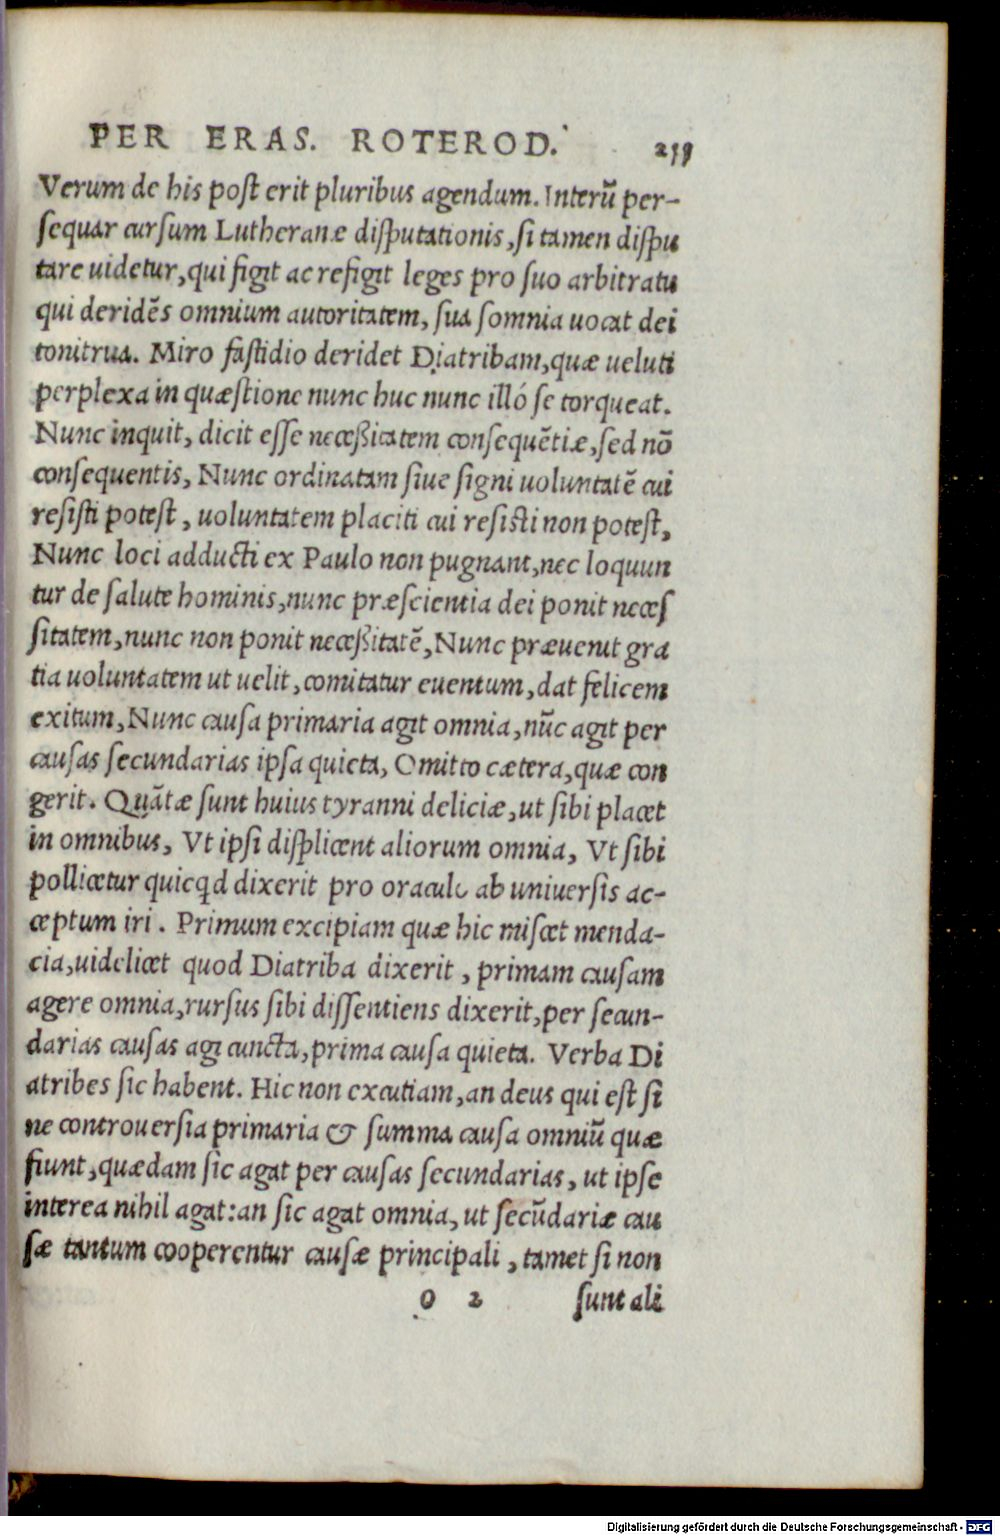 PER ERAS. ROTEROD. 259
Verum de his post erit pluribus agendum. Interũ per-
sequar cursum Lutheranæ disputationis, si tamen dispu
tare uidetur, qui figit ac refigit leges pro suo arbitratu
qui deridẽs omnium autoritatem, sua somnia uocat dei
tonitrua. Miro fastidio deridet Diatribam, quæ ueluti
perplexa in quæstione nunc huc nunc illó se torqueat.
Nunc inquit, dicit esse neceßitatem consequẽtiæ, sed nõ
consequentis, Nunc ordinatam siue signi uoluntatẽ cui
resisti potest, uoluntatem placiti cui resisti non potest,
Nunc loci adducti ex Paulo non pugnant, nec loquun
tur de salute hominis, nunc præscientia dei ponit neces
sitatem, nunc non ponit neceßitatẽ, Nunc præuenit gra
tia uoluntatem ut uelit, comitatur euentum, dat felicem
exitum, Nunc causa primaria agit omnia, nũc agit per
causas secundarias ipsa quieta, Omitto cætera, quæ con
gerit. Quãtæ sunt huius tyranni deliciæ, ut sibi placet
in omnibus, Vt ipsi displicent aliorum omnia, Vt sibi
pollicetur quicqd dixerit pro oraculo ab uniuersis ac-
ceptum iri. Primum excipiam quæ hic miscet menda-
cia, uidelicet quod Diatriba dixerit, primam causam
agere omnia, rursus sibi dissentiens dixerit, per secun-
darias causas agi cuncta, prima causa quieta. Verba Di
atribes sic habent. Hic non excutiam, an deus qui est si
ne controuersia primaria & summa causa omniũ quæ
fiunt, quædam sic agat per causas secundarias, ut ipse
interea nihil agat: an sic agat omnia, ut secũdariæ cau
sæ tantum cooperentur causæ principali, tamet si non
o 2 sunt ali
Digitalisierung gefördert durch die Deutsche Forschungsgemeinschaft - DFG